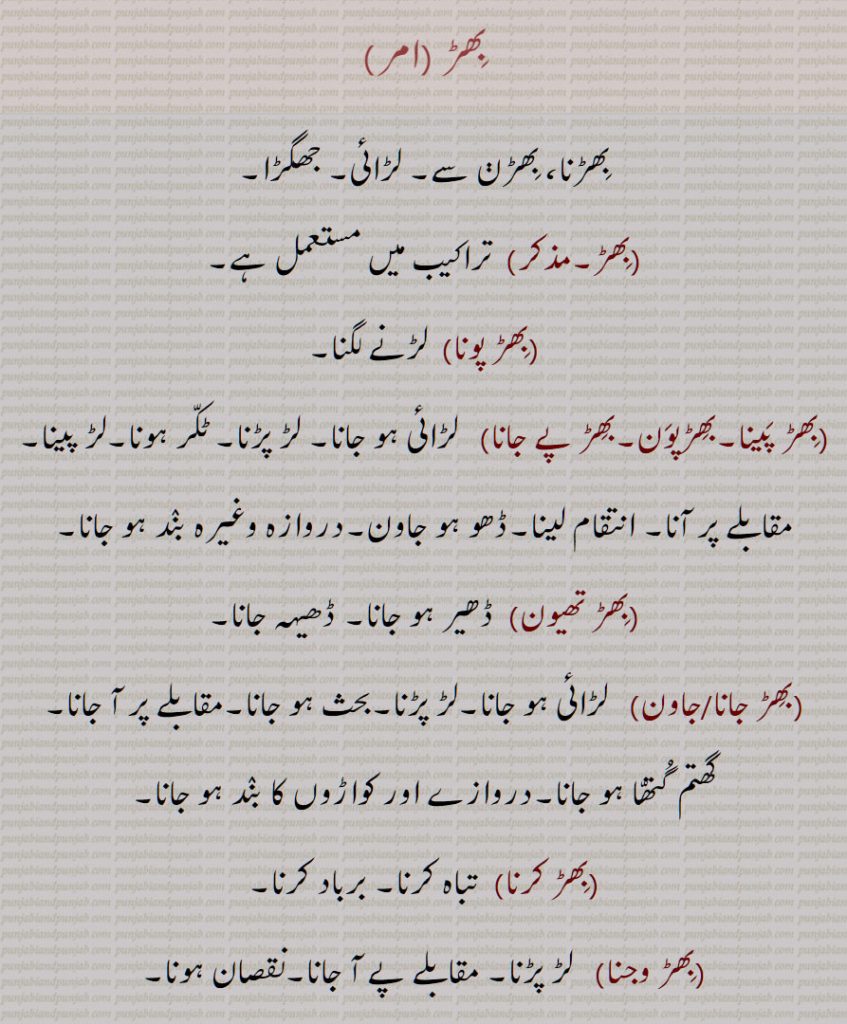 بِھڑ (امر)
بِھڑنا، بِھڑن سے۔ لڑائی۔ جھگڑا۔
(بِھڑ۔مذکر) تراکیب میں مستعمل ہے۔
(بِھڑ پونا) لڑنے لگنا۔
(بِھڑ پَینا۔بِھڑپوَن۔بِھڑ پے جانا) لڑائی ہو جانا۔ لڑ پڑنا۔ ٹکّر ہونا۔لڑ پینا۔
مقابلے پر آنا۔ انتقام لینا۔ڈھو ہو جاون۔دروازہ وغیرہ بن٘د ہو جانا۔
(بِھڑ تھیون) ڈھیر ہو جانا۔ ڈھیہہ جانا۔
(بِھڑ جانا/جاون) لڑائی ہو جانا۔لڑ پڑنا۔بحث ہو جانا۔مقابلے پر آ جانا۔
گھتم گُتھّا ہو جانا۔دروازے اور کواڑوں کا بن٘د ہو جانا۔
(بِھڑ کرنا) تباہ کرنا۔ برباد کرنا۔
(بِھڑ وجنا) لڑ پڑنا۔ مقابلے پے آ جانا۔نقصان ہونا۔